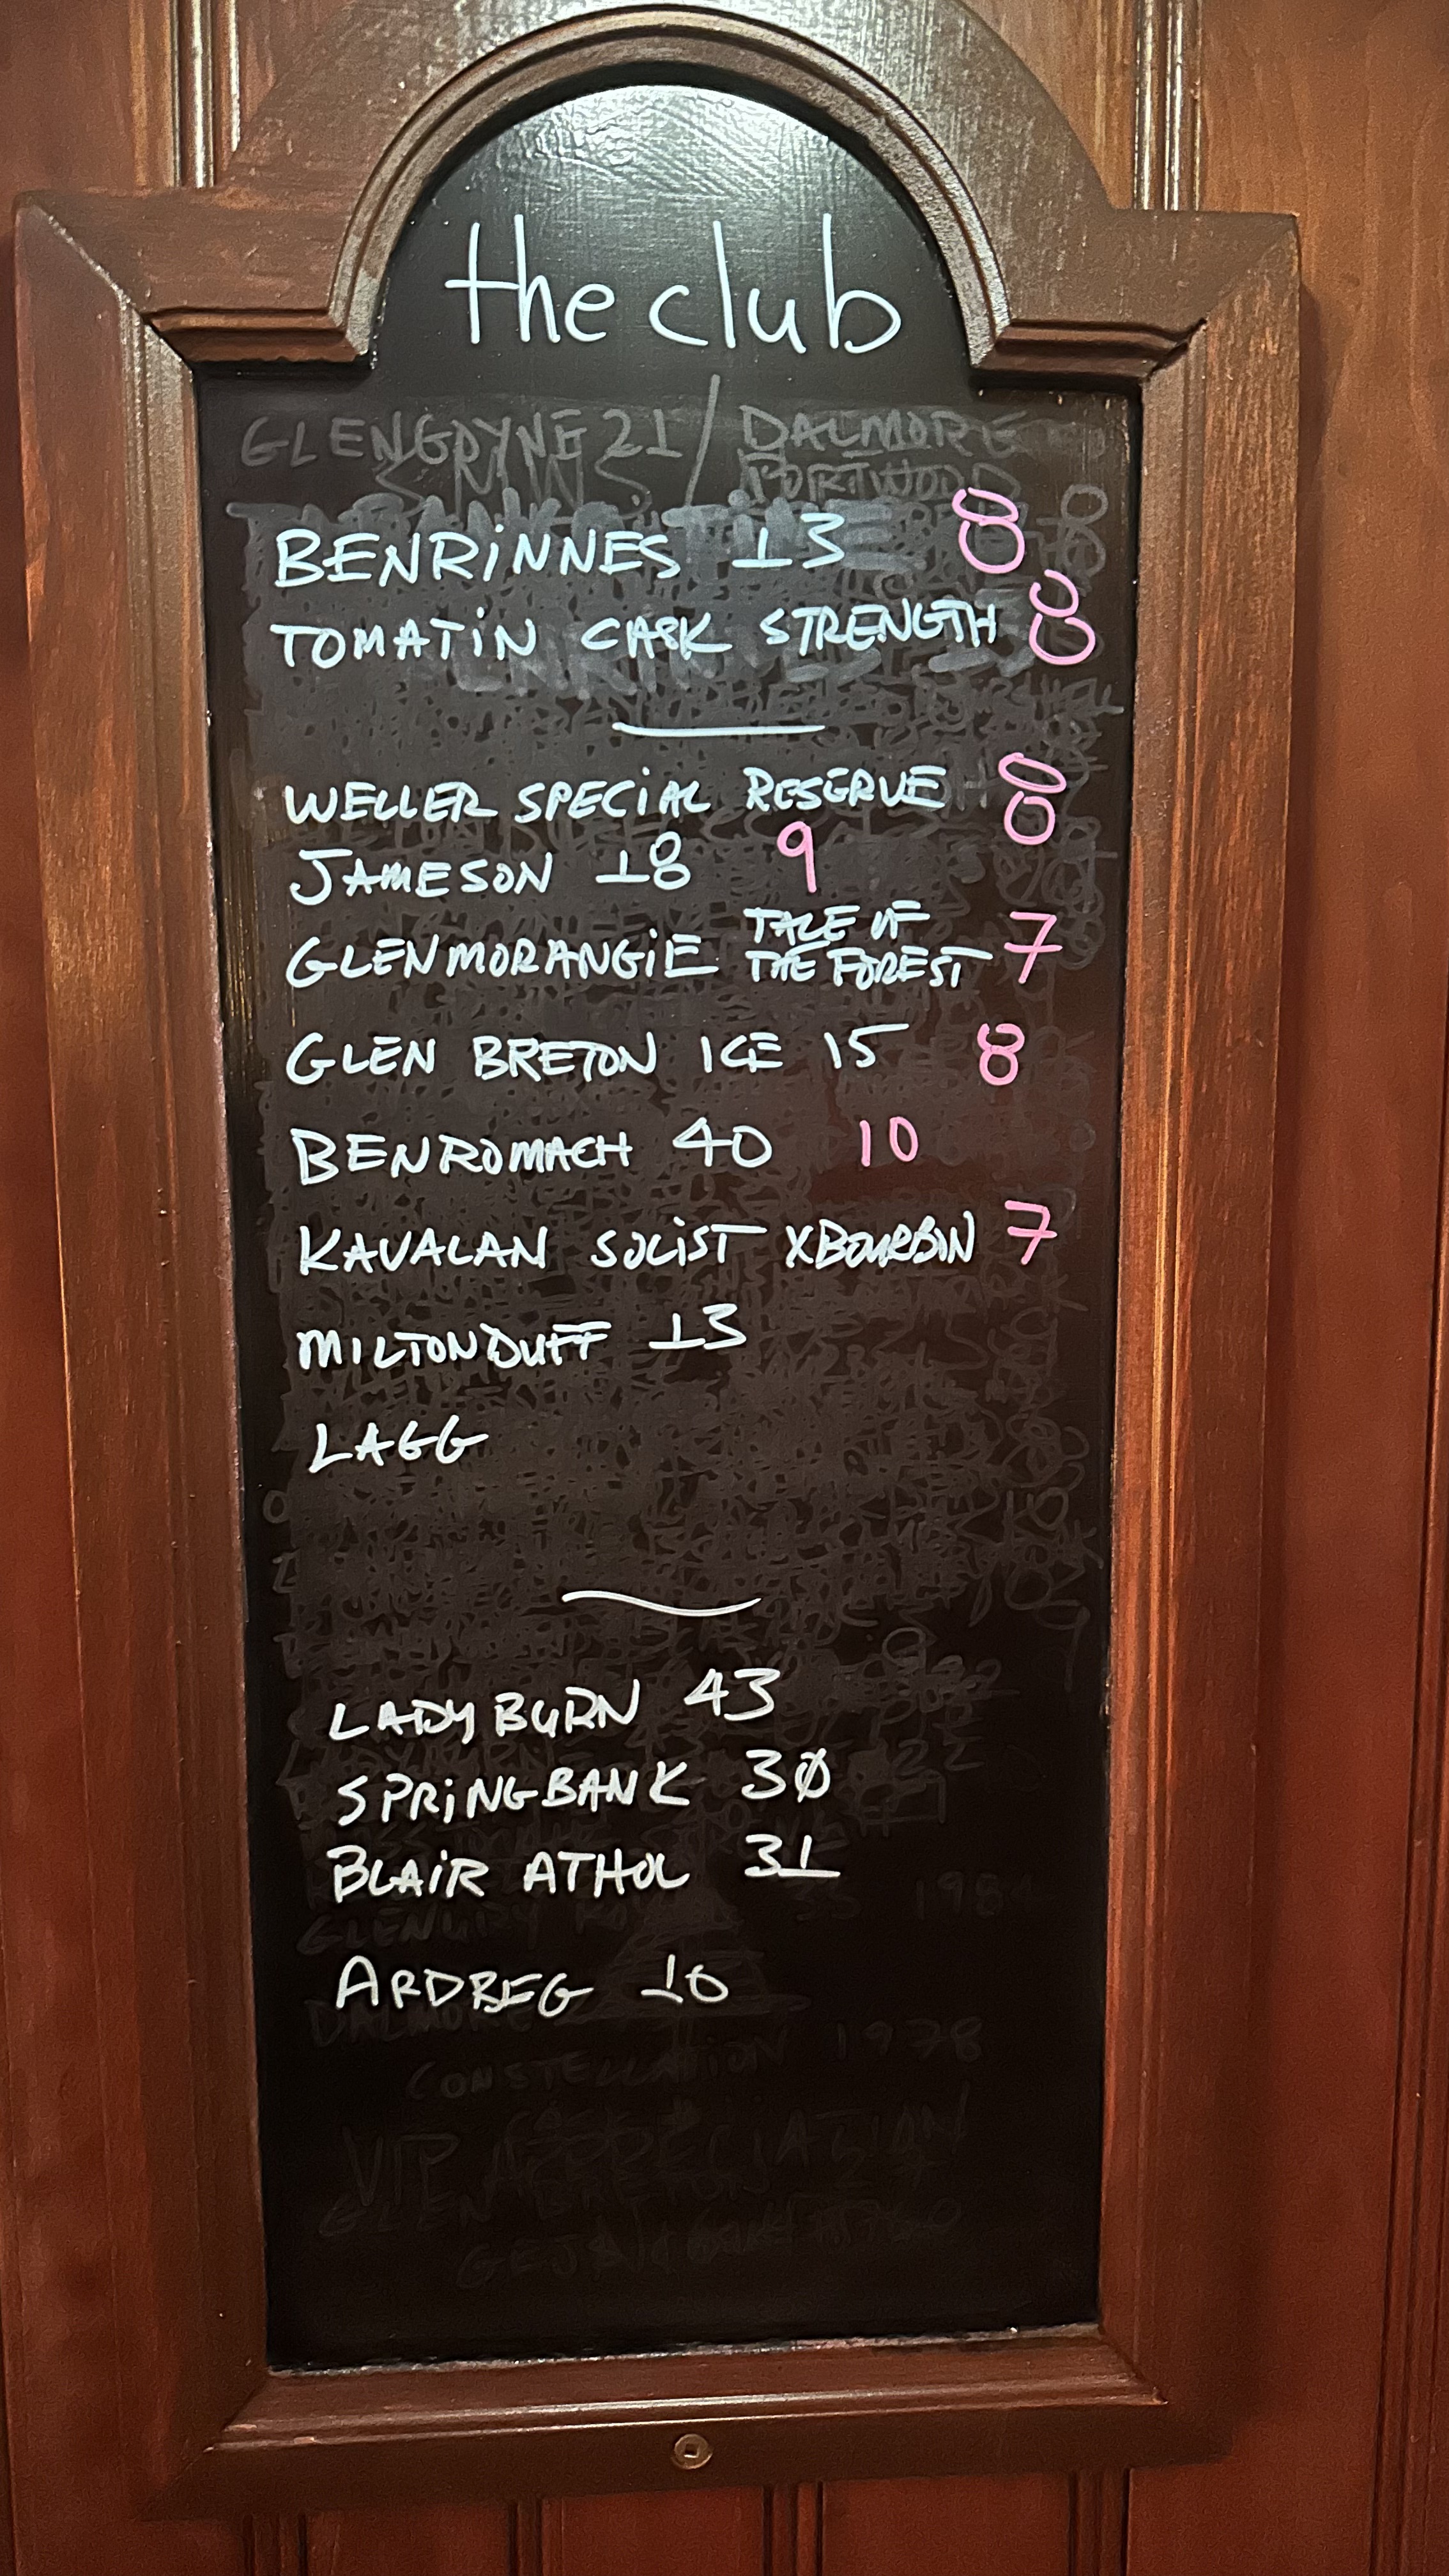 the club
GLENGOYNE 21 / DALMORE
PORTWOOD
BENRiNNES 13 8
TOMATiN CASK STRENGTH 8
WELLER SPECiAL RESERVE 8
JAMESON 18 9
GLENMORANGiE TALE OF THE FOREST 7
GLEN BRETON ICE 15 8
BENROMACH 40 10
KAVALAN SOLiST XBOURBON 7
MILTONDUFF 13
LAGG
LADYBURN 43
SPRiNGBANK 30
BLAiR ATHOL 31
ARDBEG 10
DALMORE
CONSTELLATION 1978
VIP APPRECIATION
GLEN BRETON